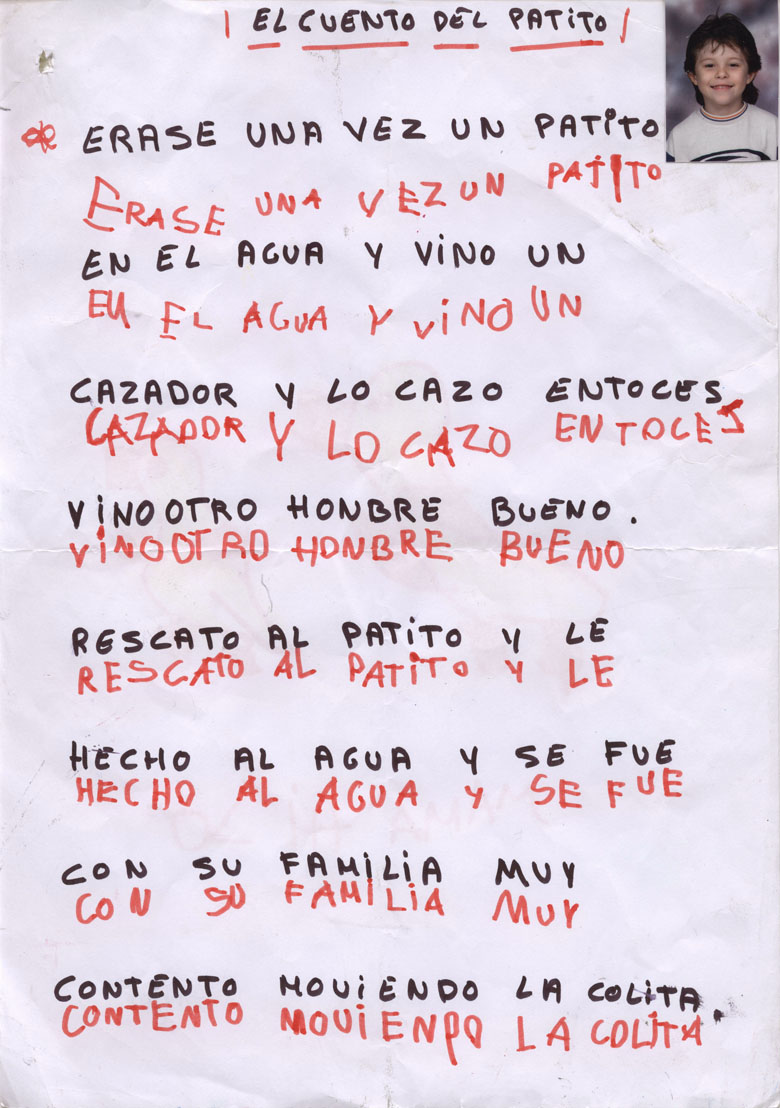 EL CUENTO DEL PATITO
ERASE UNA VEZ UN PATITO
ERASE UNA VEZ UN PATITO
EN EL AGUA Y VINO UN
EN EL AGUA Y VINO UN
CAZADOR Y LO CAZO ENTOCES
CAZADOR Y LO CAZO ENTOCES
VINO OTRO HONBRE BUENO.
VINO OTRO HONBRE BUENO
RESCATO AL PATITO Y LE
RESCATO AL PATITO Y LE
HECHO AL AGUA Y SE FUE
HECHO AL AGUA Y SE FUE
CON SU FAMILIA MUY
CON SU FAMILIA MUY
CONTENTO MOVIENDO LA COLITA.
CONTENTO MOVIENDO LA COLITA